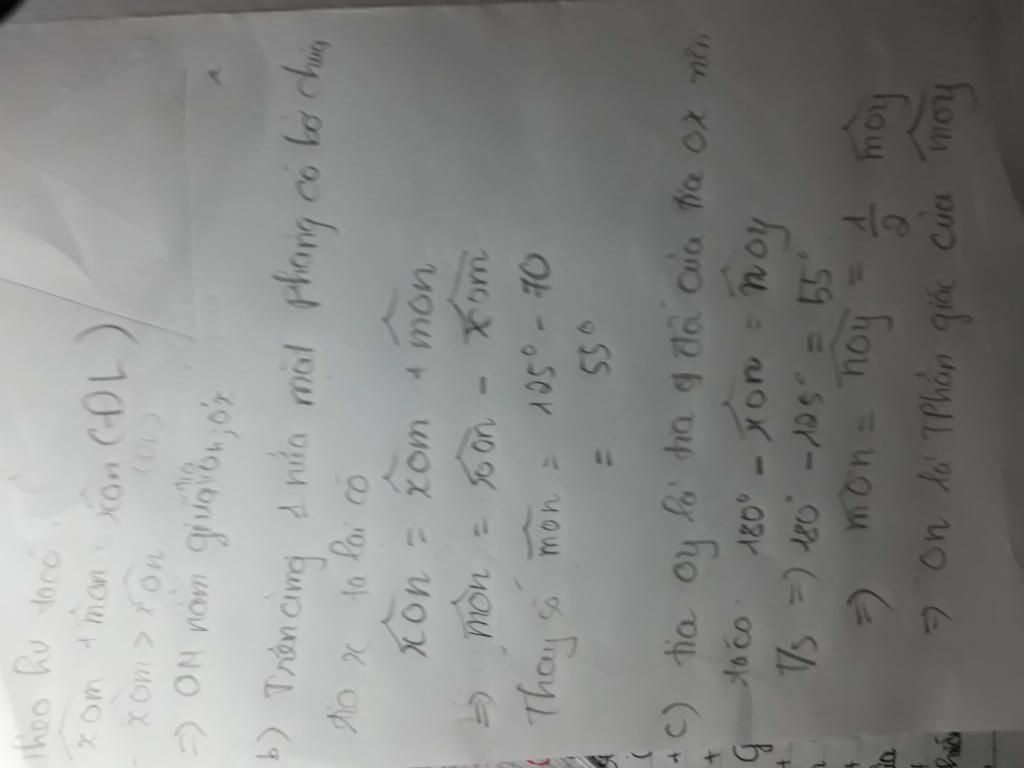 Theo hv taco
xom + mon = xon (ĐL)
xom > xon
=> OM nằm giữa tia on, ox
b) Trên cùng 1 nửa mặt phẳng có bờ chứa
tia x ta lại có
xon = xom + mon
=> mon = xon - xom
Thay số mon = 125° - 70
= 55°
c) tia oy là tia đối của tia ox nên
taco 180° - xon = noy
Ts => 180° - 125° = 55°
=> mon = noy = 1/2 moy
=> on là TPhân giác của moy